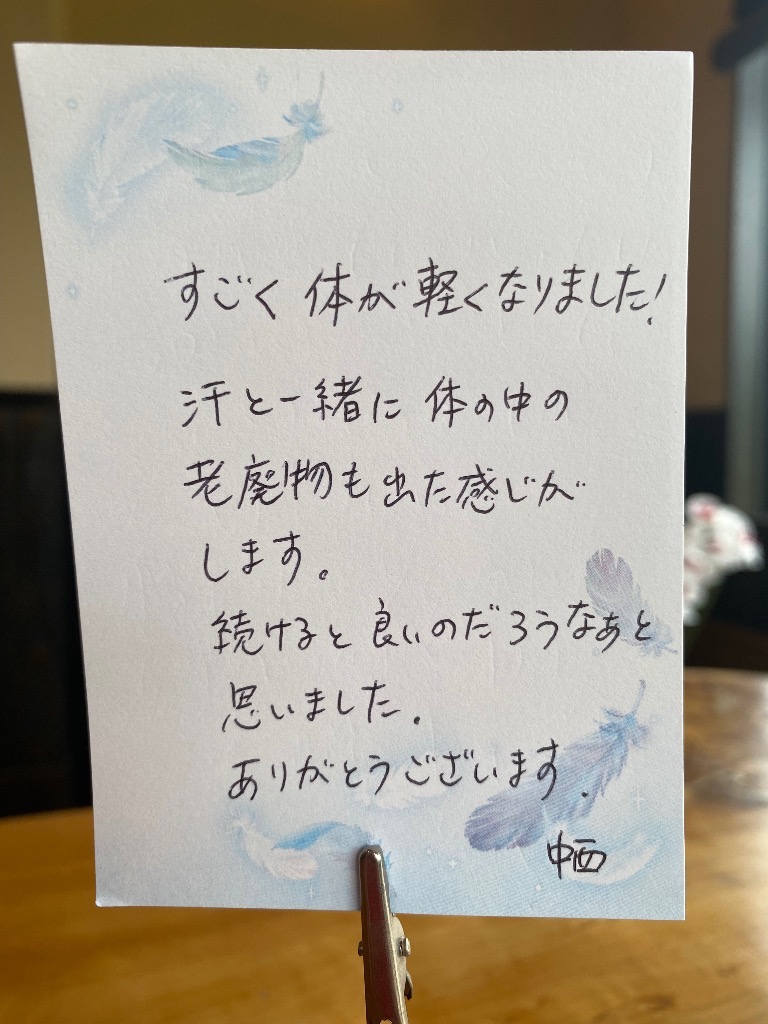 すごく 体が 軽くなりました!
汗と一緒に 体の中の
老廃物も出た感じが
します。
続けると 良いのだろうなあと
思いました.
ありがとうございます.
中西